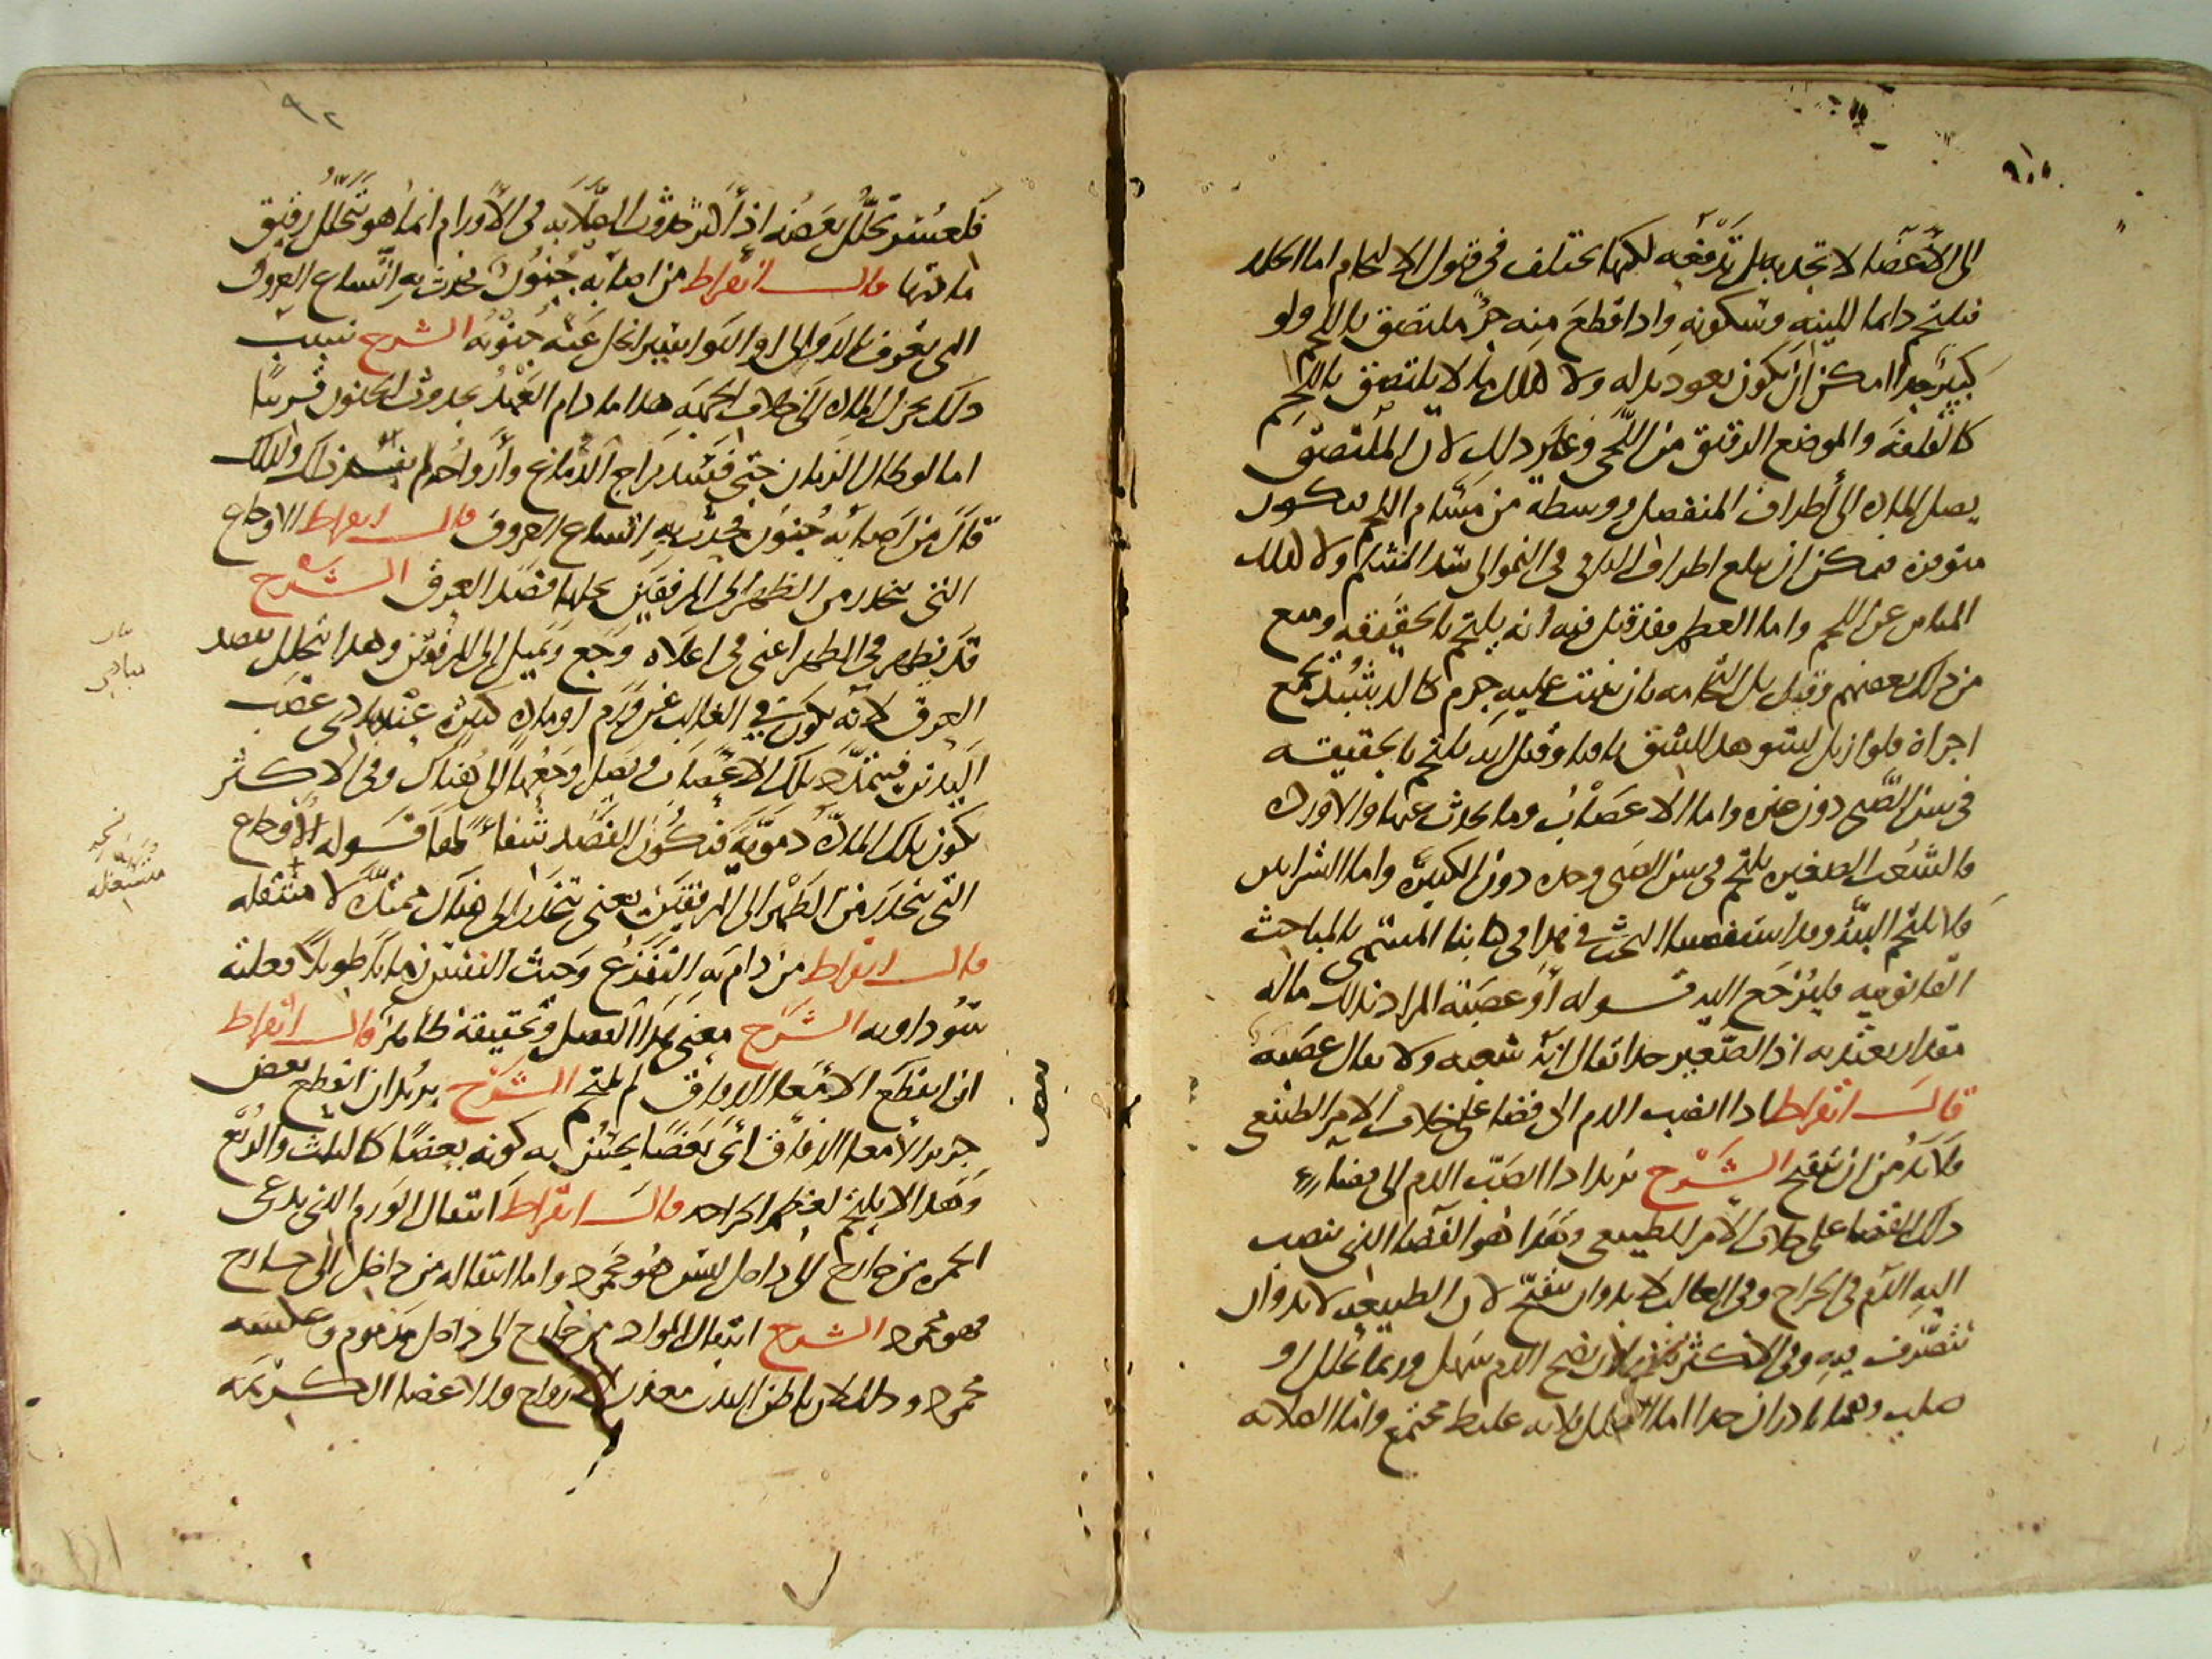 الى الاعضا لا تجد به بل تدفعه لكنها تختلف فى قبول الالتحام اما الجلد
فيلتحم دايما للينه وسكونه واذا قطع منه جزء ملتصق باللحم ولو
كبير جدا امكن ان يكون يعود بدله ولا كذلك ما لا يلتصق باللحم
كالقلفة والموضع الرقيق من اللحى وغير ذلك لان الملتصق
يصل المادة الى أطراف المنفصل ووسطه من مسام اللحم فتكون
متوفرة فيمكن ان يبلغ اطراف الباقى فى النمو الى سد المنثلم ولا كذلك
المباين عن اللحم واما العظم فقد قيل فيه انه يلتحم بالحقيقة ومنع
من ذلك بعضهم وقيل بل التحامه بان ينبت عليه جرم كالدشبد يجمع
اجزاه فلو ازيل لبقى هذا الشق باقيا وقيل انه يلتحم بالحقيقة
فى سن الصبى دون غيره واما الاعصاب وما يحدث عنها والاوردة
فالشعب الصغيرة يلتحم فى سن الصبى وحده دون الكبيرة واما الشرايين
فلا يلتحم البتة وقد استقصينا البحث فى هذا فى كتابنا المسمى بالمباحث
القانونية فليرجع اليه قوله أو عصبة المراد بذلك ماله
مقدار يعتد به اذ الصغير جدا يقال انه شعبه ولا يقال عصبه
قال ابقراط اذا انصب الدم الى فضا على خلاف الامر الطبيعى
فلا بد من ان يتقيح الشرح يريد اذا انصب الدم الى فضا
ذلك الفضا على خلاف الامر الطبيعى وهذا هو الفضا الذى ينصب
اليه الدم فى الجراح وفى الغالب لا بد وان يتقيح لان الطبيعه لا بد وان
تتصرف فيه وفى الاكثر لان نضج الدم سهل وربما تحلل او
صلب وهما نادران جدا اما التحلل فلانه غليظ مجتمع واما الصلابه
٩٢
فلعسر تحلل بعضه اذ أكثر حدوث الصلابه فى الأورام انما هو تحلل رقيق
مادتها قال ابقراط من اصابه جنون فحدث به اتساع العروق
التى تعرف بالدوالى او البواسير انحل عنه جنونه الشرح سبب
ذلك تحرك المادة الى خلاف الجهه هذا ما دام العهد بحدوث الجنون قريبا
اما لو طال الزمان حتى فسد مزاج الدماغ وأرواحه لم يفد ذلك ولذلك
قال من اصابه جنون فحدث به اتساع العروق قال ابقراط الاوجاع
التى تنحدر من الظهر الى المرفقين يحلها فصد العرق الشرح
قد يظهر فى الظهر اعنى فى اعلاه وجع ويميل الى المرفقين وهذا يحلل بفصد
العرق لانه يكون فى الغالب عن ورم او مادة كثيرة عند مبادى عصب
اليدين فيتمدد تلك الاعصاب فيصل وجعها الى هناك وفى الاكثر
يكون تلك المادة دموية فيكون الفصد شفاً لها قوله الأوجاع
التى تنحدر من الظهر الى المرفقين يعنى تنحدر الى هناك ممتدة لا منتقله
قال ابقراط من دام به التفزع وخبث النفس زمانا طويلا فعلته
سوداويه الشرح معنى هذا الفصل وتحقيقه ظاهر قال ابقراط
ان انقطع الامعا الدقاق لم يلتحم الشرح يريد ان انقطع بعض
جرم الأمعا الدقاق اى بعضا يحس به كونه بعضا كالثلث والربع
وهذا لا يلتحم لعظم الجراحه قال ابقراط انتقال الورم الذى يدعى
الحمره من خارج الى داخل ليس هو محمود واما انتقاله من داخل الى خارج
فهو محمود الشرح انتقال المواد من خارج الى داخل مذموم وعكسه
محمود وذلك لان باطن البدن معدن الارواح والاعضا الكريمه
مبادى
منتقله
بعض